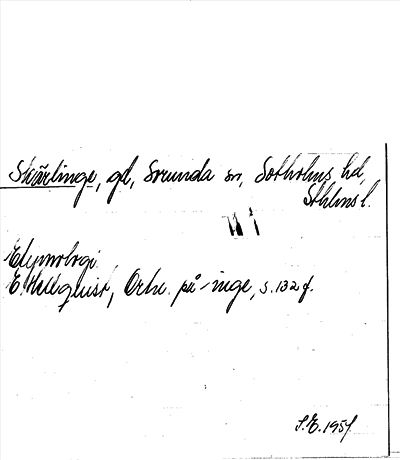 Skärlinge, gd, Sorunda sn, Sotholms hd,
Sthlms l.
Etymologi.
E. Hellquist, Ortn. på -inge, s. 132 f.
S.E. 1951